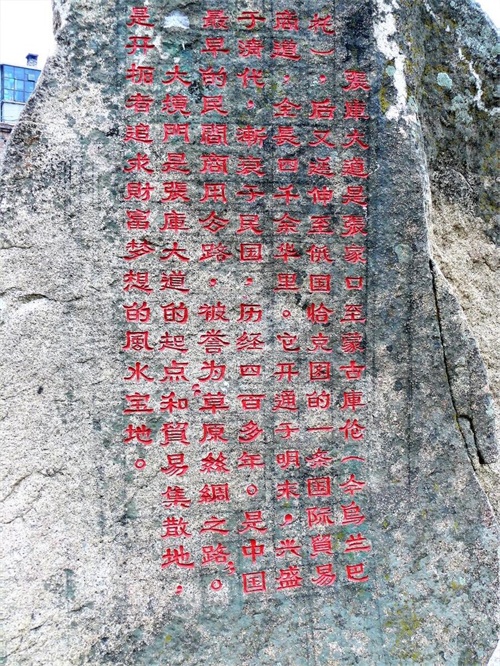 張庫大道是張家口至蒙古庫伦(今烏兰巴
托)，后又延伸至俄国恰克图的一条国际貿易
商道，全長四千余华里。它开通于明末，兴盛
于清代，衰于民国，历经四百多年。是中国
最早的民間商用公路，被誉为草原絲綢之路。
大境門是張庫大道的起点和貿易集散地；
是开拓者追求財富梦想的風水宝地。